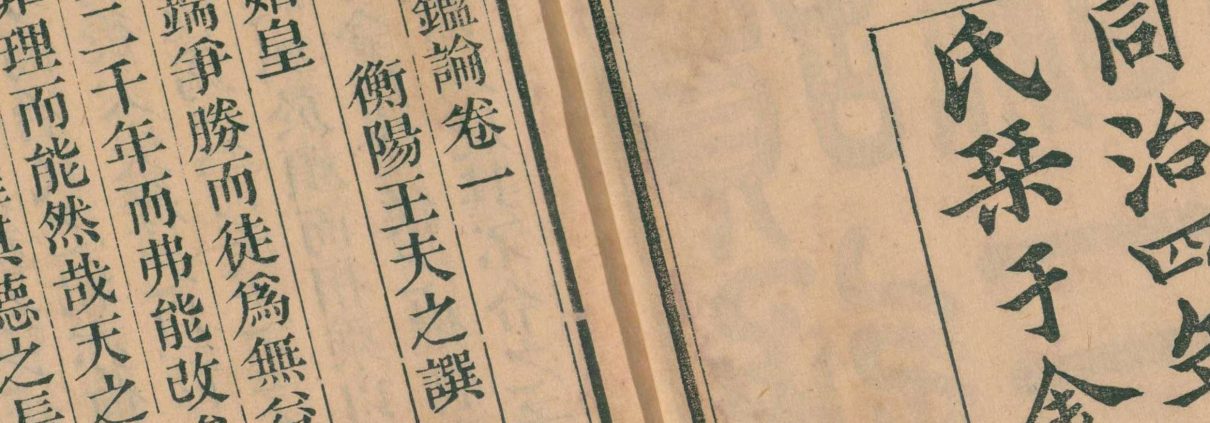 同治四年
氏栞于金
鑑論卷一
衡陽王夫之譔
始皇
端爭勝而徒為無益
二千年而弗能改矣
理而能然哉天之
其德之長